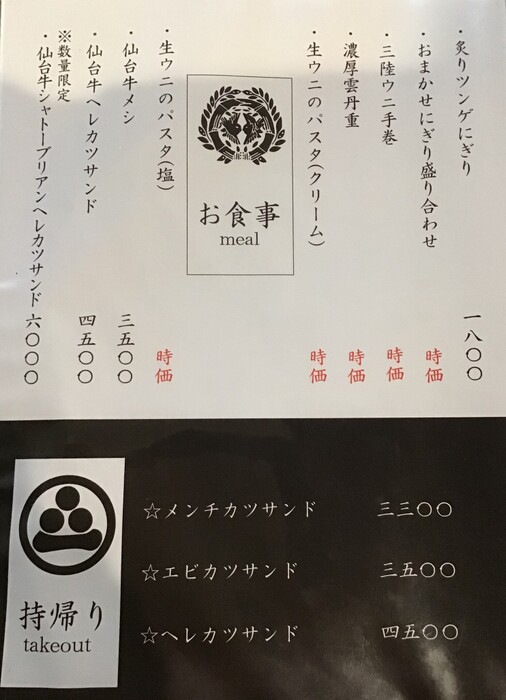 ・炙りツンゲにぎり 一八〇〇
・おまかせにぎり盛り合わせ 時価
・三陸ウニ手巻 時価
・濃厚雲丹重 時価
・生ウニのパスタ(クリーム) 時価
お食事
meal
・生ウニのパスタ(塩) 時価
・仙台牛メシ 三五〇〇
・仙台牛ヘレカツサンド 四五〇〇
※数量限定
・仙台牛シャトーブリアンヘレカツサンド 六〇〇〇
持帰り
takeout
☆メンチカツサンド 三三〇〇
☆エビカツサンド 三五〇〇
☆ヘレカツサンド 四五〇〇